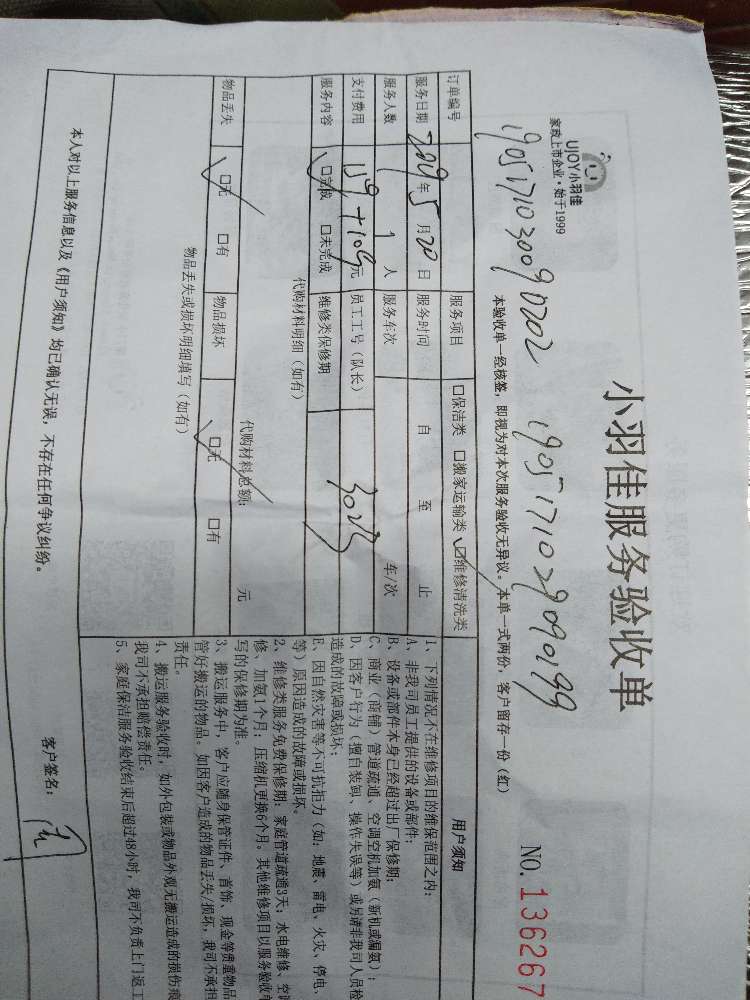 UJOY小羽佳
家政上市企业·始于1999
小羽佳服务验收单
NO.136267
1905171030090202 1905171029090199
本验收单一经核签，即视为对本次服务验收无异议。本单一式两份，客户留存一份（红）
订单编号 服务项目 □保洁类 □搬家运输类 ☑维修清洗类
服务日期 2019年5月20日 服务时间 自 至 止
服务人数 1人 服务车次 车/次
支付费用 159+109元 员工工号（队长） 3023
服务内容 ☑完成 □未完成 维修类保修期
代购材料明细（如有）
代购材料总额： 元
物品丢失 ☑无 □有 物品损坏 ☑无 □有
物品丢失或损坏明细填写（如有）
本人对以上服务信息以及《用户须知》均已确认无误，不存在任何争议纠纷。
客户签名：
用户须知
1、下列情况不在维修项目的维保范围之内：
A、非我司员工提供的设备或部件；
B、设备或部件本身已经超过出厂保修期；
C、商业（商铺）管道疏通、空调空机加氨（新机或漏氨）；
D、因客户行为（擅自装卸、操作失误等）或另请非我司人员检
造成的故障或损坏；
E、因自然灾害等不可抗拒力（如：地震、雷电、火灾、停电、
等）原因造成的故障或损坏。
2、维修类服务免费保修期：家庭管道疏通3天；水电维修、空
修、加氨1个月；压缩机更换6个月。其他维修项目以服务验收
写的保修期为准。
3、搬运服务中，客户应随身保管证件、首饰、现金等贵重物品
管好搬运的物品。如因客户造成的物品丢失/损坏，我司不承担
责任。
4、搬运服务验收时，如外包装或物品外观无搬运造成的损伤痕
我司不承担赔偿责任。
5、家庭保洁服务验收结束后超过48小时，我司不负责上门返工